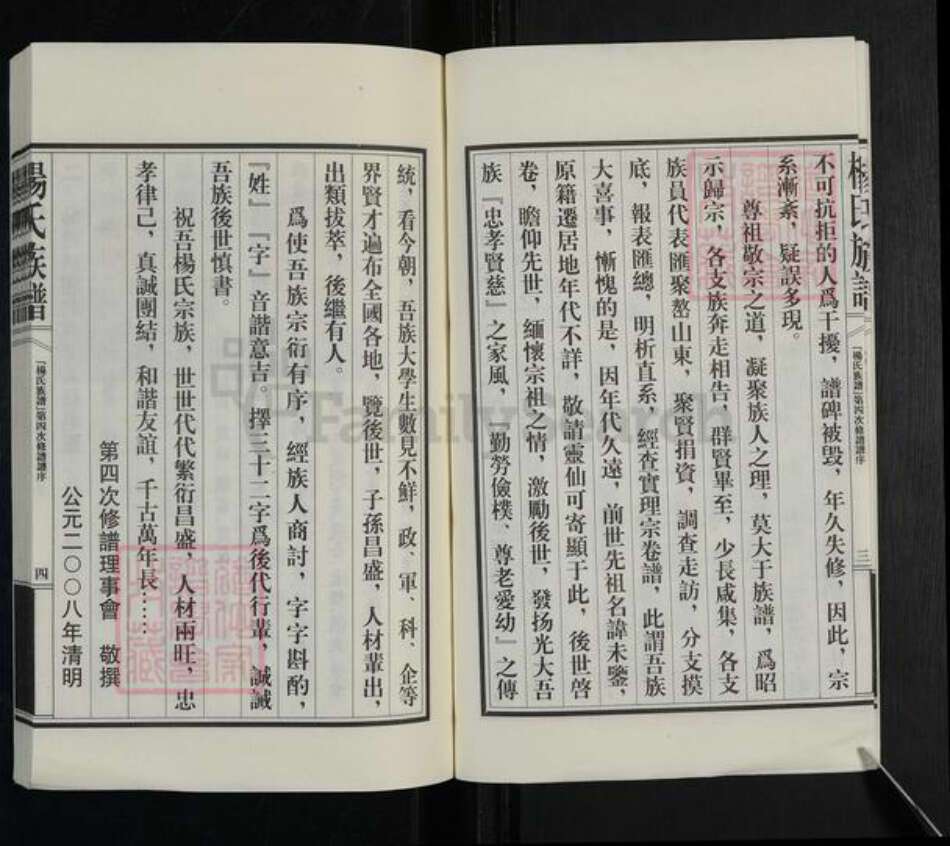 楊氏族譜
『楊氏族譜』第四次修譜譜序
三
不可抗拒的人爲干擾，譜碑被毀，年久失修，因此，宗
系漸紊，疑誤多現。
尊祖敬宗之道，凝聚族人之理，莫大于族譜，爲昭
示歸宗，各支族奔走相告，群賢畢至，少長咸集，各支
族員代表匯聚嶅山東，聚賢捐資，調查走訪，分支摸
底，報表匯總，明析直系，經查實理宗卷譜，此謂吾族
大喜事，慚愧的是，因年代久遠，前世先祖名諱未鑒，
原籍遷居地年代不詳，敬請靈仙可寄顯于此，後世啓
卷，瞻仰先世，緬懷宗祖之情，激勵後世，發扬光大吾
族『忠孝賢慈』之家風，『勤勞儉樸、尊老愛幼』之傳
統，看今朝，吾族大學生數見不鮮，政、軍、科、企等
界賢才遍布全國各地，覽後世，子孫昌盛，人材輩出，
出類拔萃，後繼有人。
爲使吾族宗衍有序，經族人商討，字字斟酌，
『姓』『字』音諧意吉。擇三十二字爲後代行輩，誠誡
吾族後世慎書。
祝吾楊氏宗族，世世代代繁衍昌盛，人材兩旺，忠
孝律己，真誠團結，和諧友誼，千古萬年長……
第四次修譜理事會　敬撰
公元二〇〇八年清明
楊氏族譜
『楊氏族譜』第四次修譜譜序
四
FamilySearch